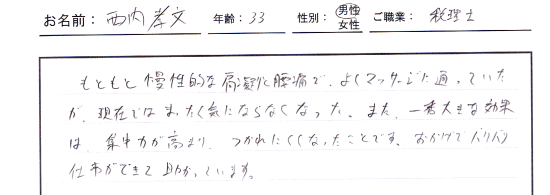 お名前：西内孝文 年齢：33 性別：男性 女性 ご職業：税理士
もともと慢性的な肩凝りと腰痛で、よくマッサージに通っていた
が、現在ではまったく気にならなくなった。また、一番大きな効果
は、集中力が高まり、つかれにくくなったことです。おかげでバリバリ
仕事ができて助かっています。